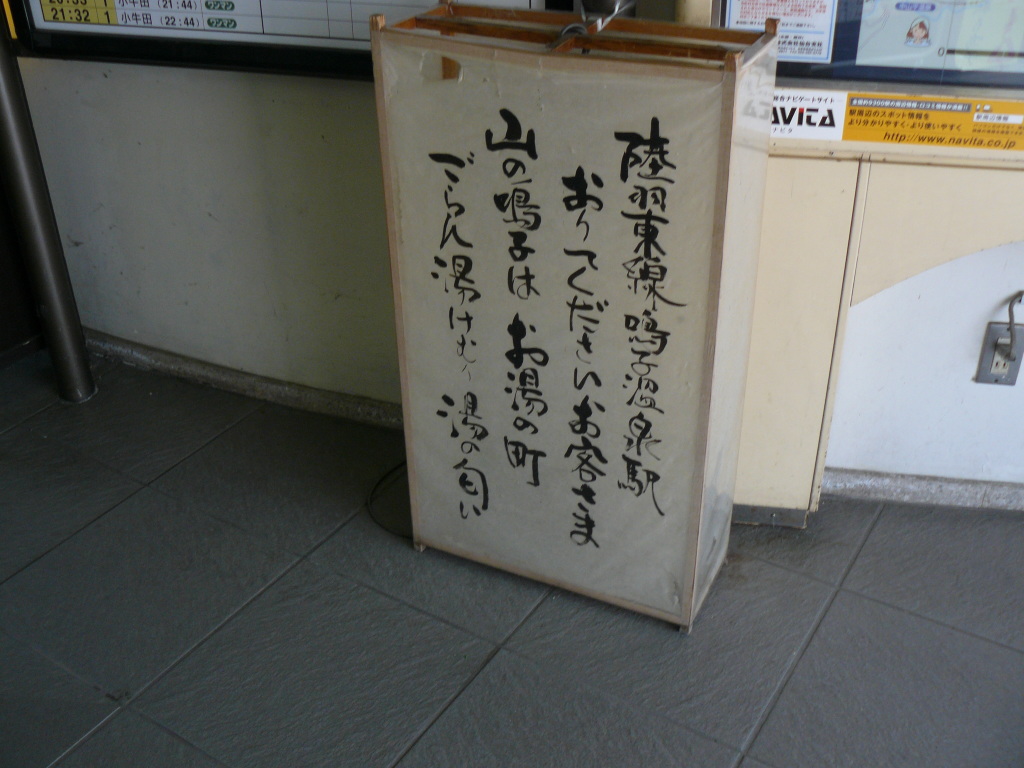 陸羽東線 鳴子温泉駅
おりてくださいお客さま
山の鳴子は お湯の町
ごらん湯けむり 湯の匂い
小牛田 (21:44) ワンマン
21:32 1 小牛田 (22:44) ワンマン
合ナビゲートサイト
AVITA
ナビタ
駅周辺のスポット情報を
より分かりやすく・より使いやすく
http://www.navita.co.jp